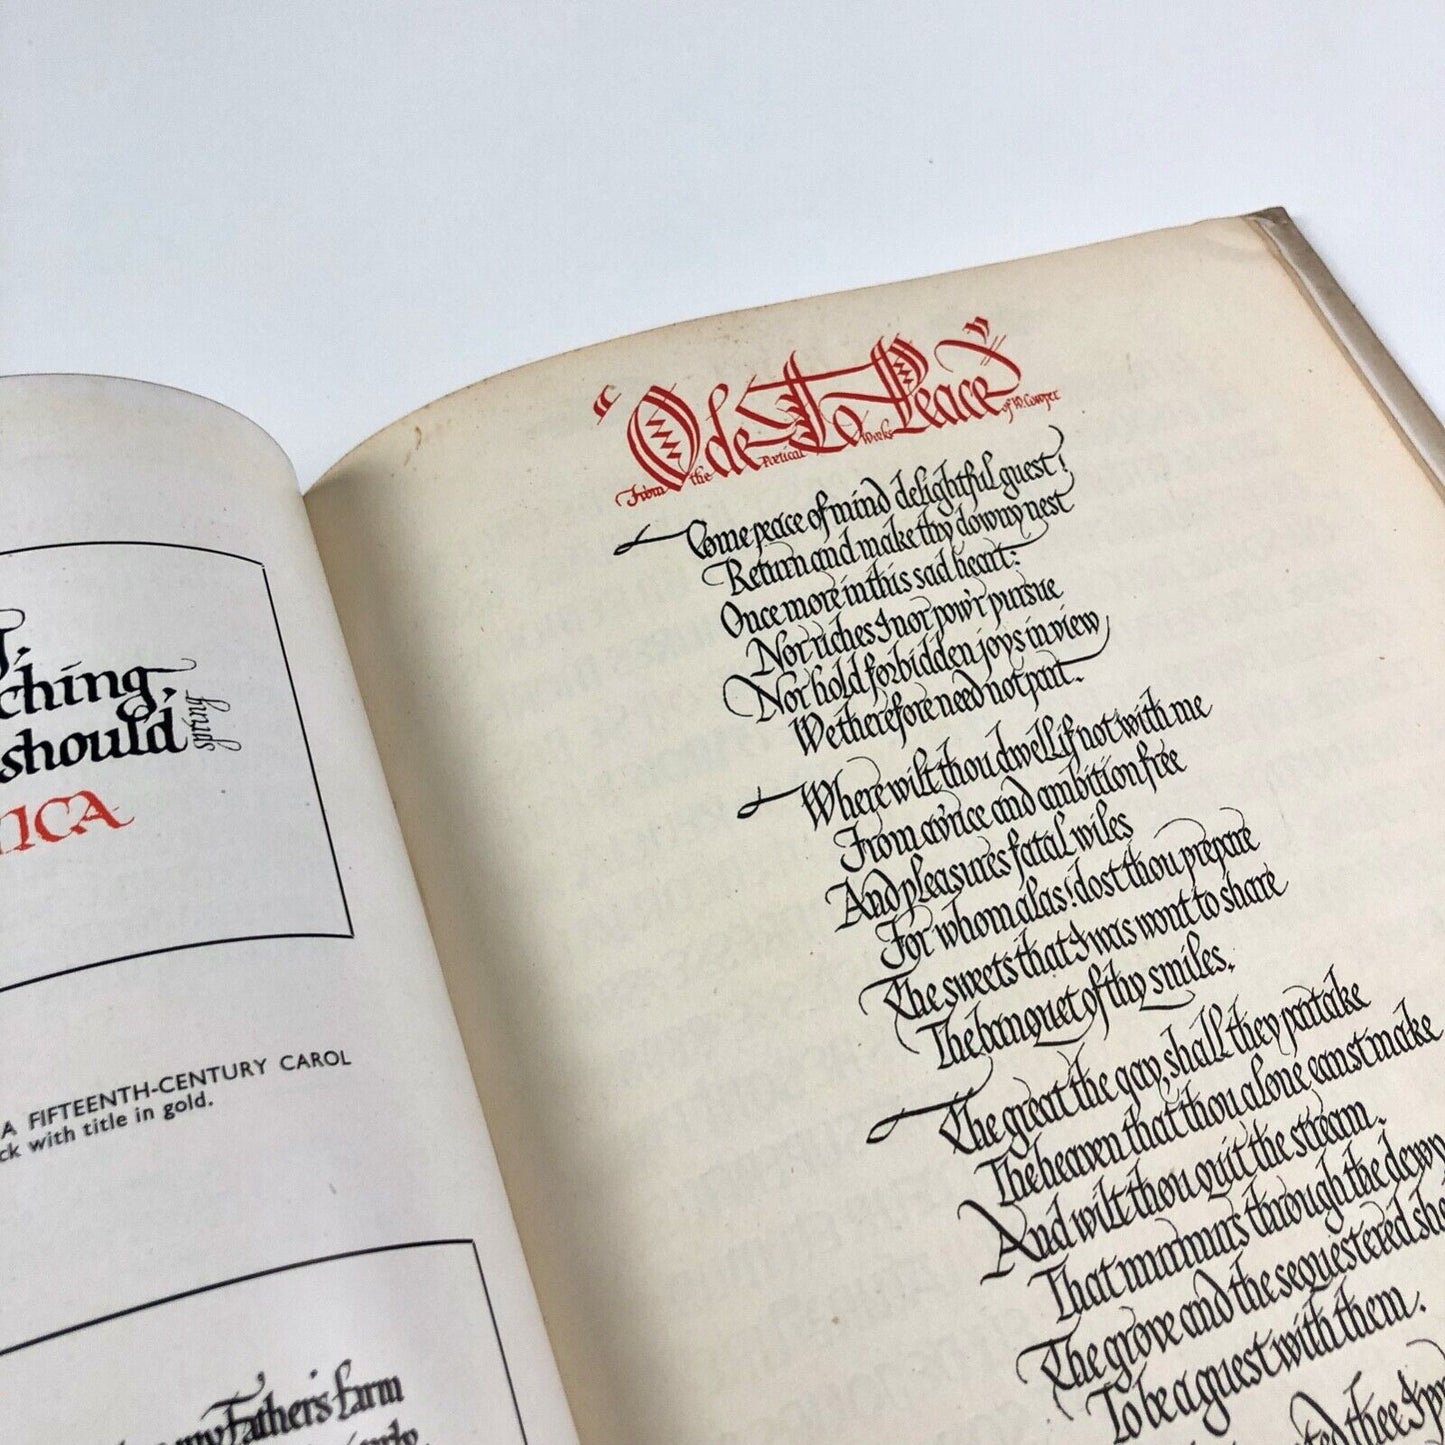 g,
ching,
should
spring
NICA
A FIFTEENTH-CENTURY CAROL
ck with title in gold.
my Father's farm
"Ode To Peace"
From the Poetical Works of W. Cowper
Come peace of mind delightful guest!
Return and make thy downy nest
Once more in this sad heart:
Nor riches I nor pow'r pursue
Nor hold forbidden joys in view
We therefore need not part.
Where wilt thou dwell if not with me
From av'rice and ambition free
And pleasures fatal wiles
For whom alas! dost thou prepare
The sweets that I was wont to share
The banquet of thy smiles.
The great the gay, shall they partake
The heaven that thou alone canst make
And wilt thou quit the stream.
That murmurs through the dewy
The grove and the sequestered she
To be a guest with them.
ted thee I pr